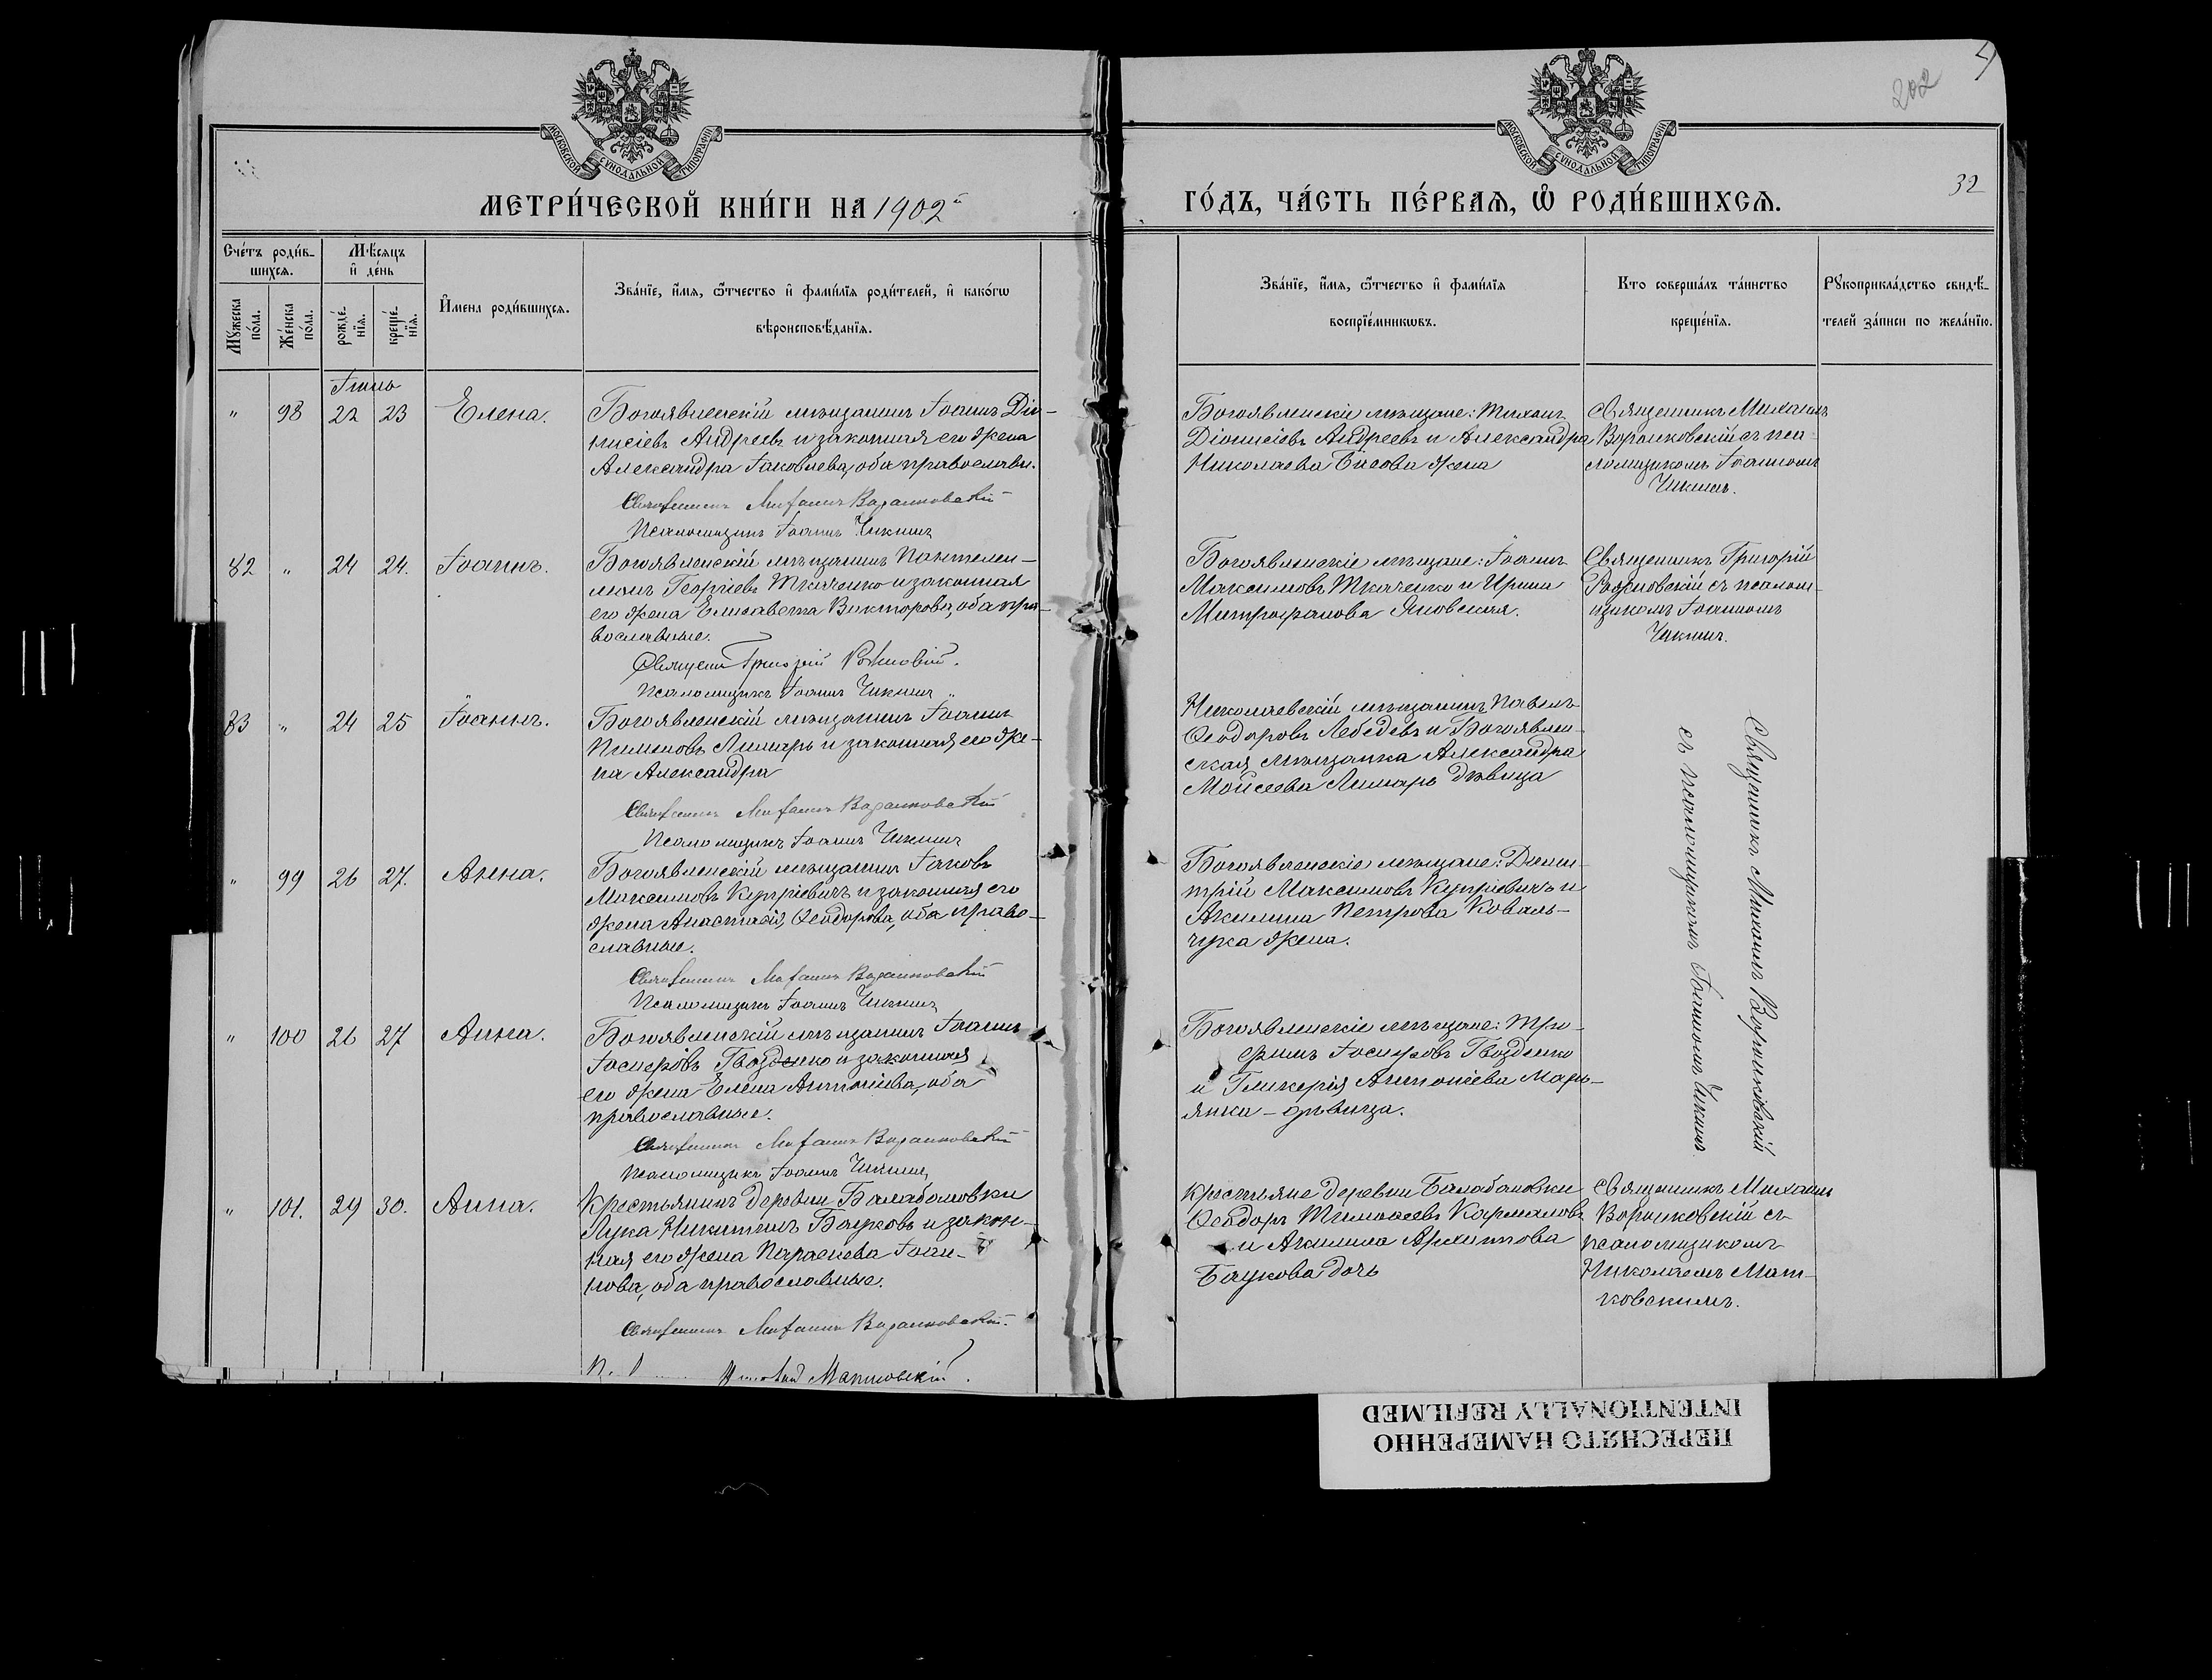 202
32
МОСКОВСКОЙ СѴНОДАЛЬНОЙ ТИПОГРАФІИ
МОСКОВСКОЙ СѴНОДАЛЬНОЙ ТИПОГРАФІИ
МЕТРИ́ЧЕСКОЙ КНИ́ГИ НА 1902й
ГО́ДЪ, ЧА́СТЬ ПЕ́РВАѦ, Ѡ҆ РОДИ́ВШИХСѦ.
Сче́тъ роди́в-
шихсѧ.
Мꙋ́жеска по́ла.
Же́нска по́ла.
Мѣ́сѧцъ
и҆ де́нь
рожде́-
нїѧ.
креще́-
нїѧ.
И҆мена роди́вшихсѧ.
Зва́нїе, и҆́мѧ, ѻ҆́тчество и҆ фами́лїѧ роди́телей, и҆ како́гѡ
вѣроисповѣ́данїѧ.
Зва́нїе, и҆́мѧ, ѻ҆́тчество и҆ фами́лїѧ
воспрїе́мникѡвъ.
Кто соверша́лъ та́инство
креще́нїѧ.
Рꙋкоприкла́дство свидѣ́-
телей за́писи по жела́нїю.
Іюнь
" 98 22 23 Елена.
Богоявленскій мѣщанинъ Іоаннъ Діо-
нисіевъ Андреевъ и законная его жена
Александра Іаковлева, оба православн.
Священникъ Михаилъ Воронковскій
Псаломщикъ Іоаннъ Чикинъ
Богоявленскіе мѣщане: Тихонъ
Діонисіевъ Андреевъ и Александра
Николаева жена
Священникъ Михаилъ
Воронковскій съ пса-
ломщикомъ Іоанномъ
Чикинъ.
82 " 24 24. Іоаннъ.
Богоявленскій мѣщанинъ Пантелеи-
монъ Георгіевъ Ткаченко и законная
его жена Елисавета Викторова, оба пра-
вославные.
Григорій
Псаломщикъ Іоаннъ Чикинъ "
Богоявленскіе мѣщане: Іоаннъ
Максимовъ Ткаченко и Ирина
Митрофанова Яновская.
Священникъ Григорій
съ псалом-
щикомъ Іоанномъ
Чикинъ.
83 " 24 25 Іоаннъ.
Богоявленскій мѣщанинъ Іоаннъ
Пименовъ Лимарь и законная его же-
на Александра
Священникъ Михаилъ Воронковскій
Псаломщикъ Іоаннъ Чикинъ
Николаевскій мѣщанинъ Павелъ
Ѳеодоровъ Лебедевъ и Богоявлен-
ская мѣщанка Александра
Моисеева Лимарь дѣвица
Священникъ Михаилъ Воронковскій
съ псаломщикомъ Іоанномъ Чикинъ.
" 99 26 27. Анна.
Богоявленскій мѣщанинъ Іаковъ
Максимовъ Купріевичъ и законная его
жена Анастасія Ѳеодорова, оба право-
славные.
Священникъ Михаилъ Воронковскій
Псаломщикъ Іоаннъ Чикинъ
Богоявленскіе мѣщане: Дими-
трій Максимовъ Купріевичъ и
Акилина Петрова Коваль-
чука жена.
" 100 26 27 Анна.
Богоявленскій мѣщанинъ Іоаннъ
Іосифовъ Гвозденко и законная
его жена Елена Антоніева, оба
православные.
Священникъ Михаилъ Воронковскій
Псаломщикъ Іоаннъ Чикинъ
Богоявленскіе мѣщане: Тро-
фимъ Іосифовъ Гвозденко
и Гликерія Антоніева
дѣвица.
" 101. 29 30. Анна.
Крестьянинъ деревни Балабановки
Лука Никитинъ Бауковъ и закон-
ная его жена Параскева Іоан-
нова, оба православные.
Священникъ Михаилъ Воронковскій.
Николай Матковскій.
Крестьяне деревни Балабановки
Ѳеодоръ Тимоѳеевъ Кармановъ
и Акилина Архиппова
Баукова дочь
Священникъ Михаилъ
Воронковскій съ
псаломщикомъ
Николаемъ Мат-
ковскимъ.
ПЕРЕСНЯТО НАМЕРЕННО
INTENTIONALLY REFILMED